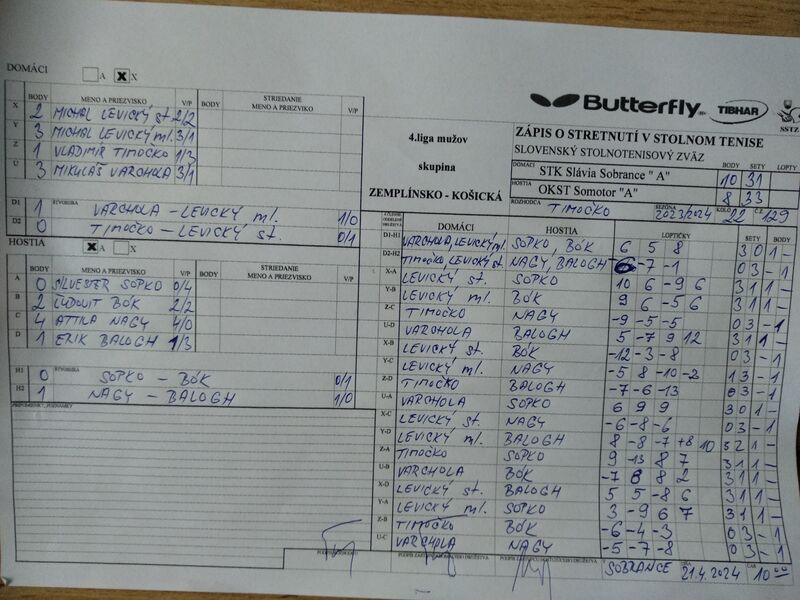 DOMÁCI A X X
BODY MENO A PRIEZVISKO V/P BODY STRIEDANIE MENO A PRIEZVISKO V/P
X 2 MICHAL LEVICKÝ st. 2/2
Y 3 MICHAL LEVICKÝ ml. 3/1
Z 1 VLADIMÍR TIMOČKO 1/3
U 3 MIKULÁŠ VARCHOLA 3/1
D1 1 ŠTVORHRA VARCHOLA - LEVICKÝ ml. 1/0
D2 0 TIMOČKO - LEVICKÝ st. 0/1
HOSTIA X A X
BODY MENO A PRIEZVISKO V/P BODY STRIEDANIE MENO A PRIEZVISKO V/P
A 0 SILVESTER SOPKO 0/4
B 2 ĽUDOVIT BÓK 2/2
C 4 ATTILA NAGY 4/0
D 1 ERIK BALOGH 1/3
H1 0 ŠTVORHRA SOPKO - BÓK 0/1
H2 1 NAGY - BALOGH 1/0
PRIPOMIENKY, POZNÁMKY
Butterfly TIBHAR SSTZ
4.liga mužov
skupina
ZEMPLÍNSKO - KOŠICKÁ
ZÁPIS O STRETNUTÍ V STOLNOM TENISE
SLOVENSKÝ STOLNOTENISOVÝ ZVÄZ BODY SETY LOPTY
DOMÁCI STK Slávia Sobrance "A" 10 31
HOSTIA OKST Somotor "A" 8 33
ROZHODCA TIMOČKO SEZÓNA 2023/2024 KOLO 22 Č. 129
DOMÁCI HOSTIA LOPTIČKY SETY BODY
D1-H1 VARCHOLA, LEVICKÝ ml. SOPKO BÓK 6 5 8 3 0 1 -
D2-H2 TIMOČKO, LEVICKÝ st. NAGY, BALOGH -7 -1 0 3 - 1
X-A LEVICKÝ st. SOPKO 10 6 -9 6 3 1 1 -
Y-B LEVICKÝ ml. BÓK 9 6 -5 6 3 1 1 -
Z-C TIMOČKO NAGY -9 -5 -5 0 3 - 1
U-D VARCHOLA BALOGH 5 -7 9 12 3 1 1 -
X-B LEVICKÝ st. BÓK -12 -3 -8 0 3 - 1
Y-C LEVICKÝ ml. NAGY -5 8 -10 -2 1 3 - 1
Z-D TIMOČKO BALOGH -7 -6 -13 0 3 - 1
U-A VARCHOLA SOPKO 6 9 9 3 0 1 -
X-C LEVICKÝ st. NAGY -6 -8 -6 0 3 - 1
Y-D LEVICKÝ ml. BALOGH 8 -8 -7 +8 10 3 2 1 -
Z-A TIMOČKO SOPKO 9 -13 8 7 3 1 1 -
U-B VARCHOLA BÓK -7 8 8 2 3 1 1 -
X-D LEVICKÝ st. BALOGH 5 5 -8 6 3 1 1 -
Y-A LEVICKÝ ml. SOPKO 3 -9 6 7 3 1 1 -
Z-B TIMOČKO BÓK -6 -4 -3 0 3 - 1
U-C VARCHOLA NAGY -5 -7 -8 0 3 - 1
SOBRANCE 21.4.2024 10 00